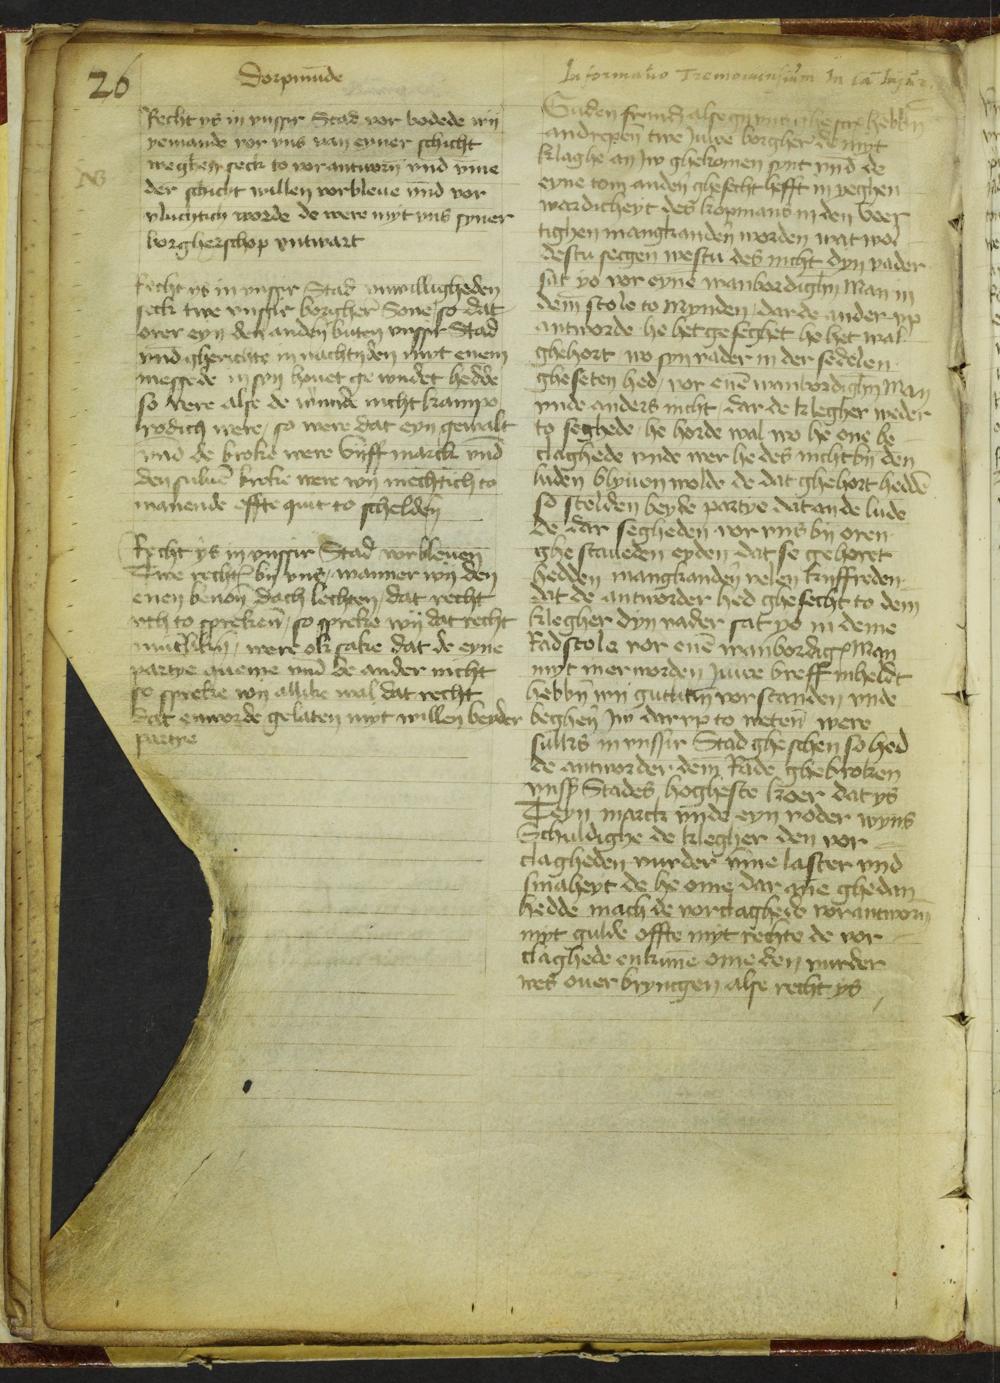 26
Dorpmu̅de
Recht ys in vnssir Stad vor bodede wij
yemande vor vns van eyner schicht
weghen seck to vorantworn vnd vme
NB
der schicht willen vorbleue vnd vor
vluchtich worde de were myt vns syner
borgherschop vntwart
Recht ys in vnssir Stad vnwillugheden
seck twe vnssir borgher Sone so dat
orer eyn den anden buten vnssir Stad
vnd gherichte in nachtyden myt enem
messede in syn houet ge wndet hedde
so were alse de wunde nicht kamp
wodich were, so were dat eyn gewalt
vnd de broke were Viff marck vnd
den suluē broke were wij mechtich to
manende effte quit to schelden
Recht ys in vnssir Stad vorbleuen
Twe rechts bij vns, wanner wij den
enen benon dach lechten, dat recht
vth to spreken, so spreke wij dat recht
were ok sake dat de eyne
partye queme vnd de ander nicht
so spreke wij allike wal dat recht
Dat enworde gelaten myt willen beyder
partye
Informatio Tremoniensium In ca Injur.
Guden frund alse gij vns ghescr hebbn
andrepen twe Juwe borgher de myt
klaghe an Jw ghekomen synt vnd de
eyne tom anden ghesecht hefft in yeghen
wardicheyt des kopmans in den Veer
tighen mangkanden worden wat wol
destu secgen westu des nicht dyn vader
sat yo vor eyne wanbordighn Man in
dem stole to Mynden, dar de ander vp
antworde he het geseghet he het wal
ghehort wo syn vader in der sedelen
gheseten hed, vor enē wanbordighn Man
vnde anders nicht, dar de klegher weder
to seghede, he horde wal wo he one be
claghede vnde wer he des nicht bij den
luden blyuen wolde de dat ghehort heddē
so stelden beyde partye dat an de lude
de dar segheden vor vns bij oren
ghestaueden eyden dat se gehoret
hedden mangkanden velen kyffreden
dat de antworder hed ghesecht to dem
klegher dyn vader sat yo in deme
Radstole vor enē wanbordigē Man
myt mer worden Juwe breff inheldt
hebbn wij guttikn vorstanden vnde
begheren Jw dar vp to weten were
sulks in vnssir Stad gheschen so hed
de antworder dem Rade ghebroken
vnss Stades hogheste koer dat ys
Teyn marck vnde eyn voder wyns
Schuldighe de klegher den vor
clagheden vurder vme laster vnd
smaheyt de he ome dar ane ghedan
hedde mach de vorclaghede vorantworn
myt gulde offte myt rechte de vor
claghede enkunne ome den vurder
wes ouer bryncgen alse recht ys